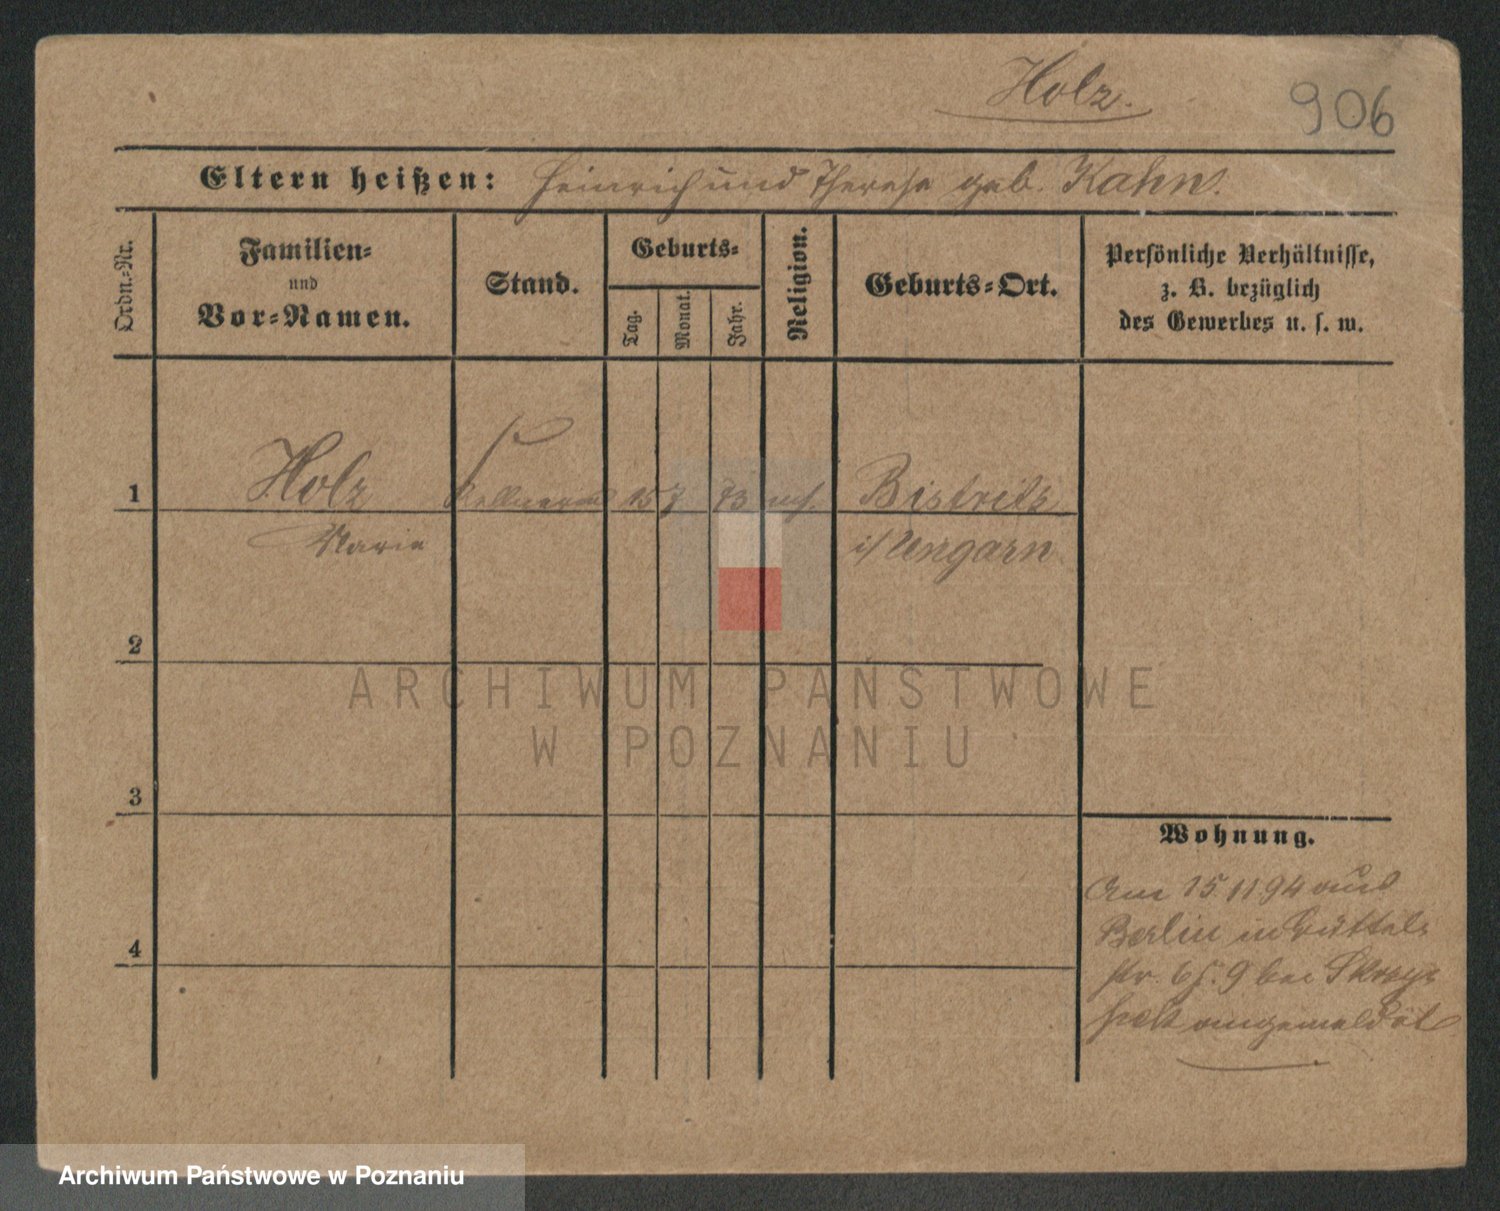 Holz.
906
Eltern heißen: Heinrich und Therese geb. Kahn.
Ordn.-Nr.
Familien-
und
Vor-Namen.
Stand.
Geburts-
Tag.
Monat.
Jahr.
Religion.
Geburts-Ort.
Persönliche Verhältnisse,
z. B. bezüglich
des Gewerbes u. s. w.
1 Holz Kellnerin 15 7 73 Bistritz
Marie i/ Ungarn
2
3
4
Wohnung.
Am 15.11.94 aus
Berlin in Büttel-
str. 9 bei
angemeldet
ARCHIWUM PAŃSTWOWE
W POZNANIU
Archiwum Państwowe w Poznaniu